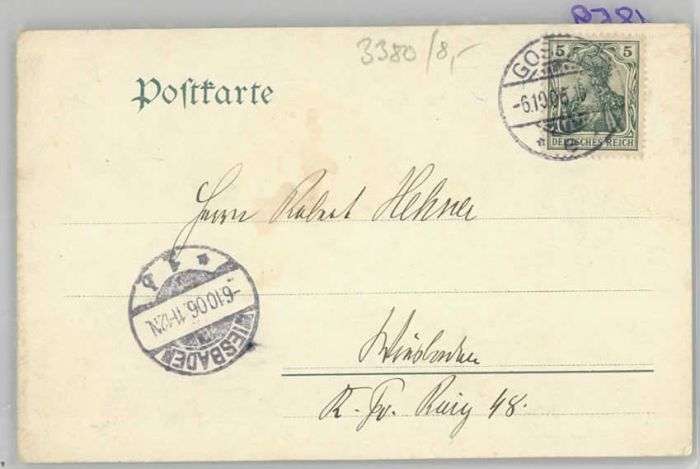 3380/8,-
5 5
GOS
-6.10.06
DEUTSCHES REICH
Postkarte
Herrn Robert Hehner
1 b
-6.10.06.11-12N.
WIESBADEN
Wiesbaden
K. Fr. Ring 48.